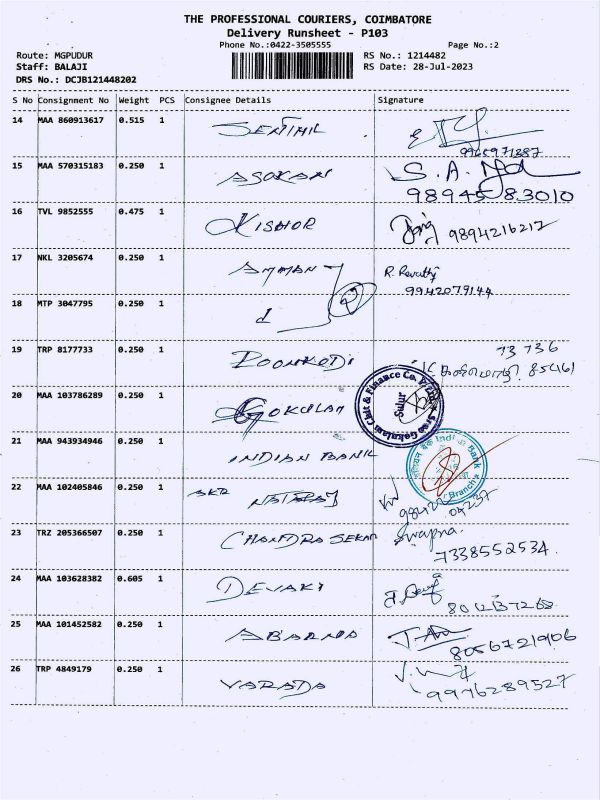 THE PROFESSIONAL COURIERS, COIMBATORE
Delivery Runsheet - P103
Phone No.:0422-3505555 Page No.:2
Route: MGPUDUR RS No.: 1214482
Staff: BALAJI RS Date: 28-Jul-2023
DRS No.: DCJB121448202
S No Consignment No Weight PCS Consignee Details Signature
14 MAA 860913617 0.515 1 SENTHIL
15 MAA 570315183 0.250 1 ASOKAN S. A.
9894583010
16 TVL 9852555 0.475 1 KISHOR 9894216217
17 NKL 3205674 0.250 1 AMMAN R. Revathy
9942079144
18 MTP 3047795 0.250 1
19 TRP 8177733 0.250 1 POONKODI 73736
85461
20 MAA 103786289 0.250 1 GOKULAM Sree Gokulam Chit & Finance Co. Sulur
21 MAA 943934946 0.250 1 INDIAN BANK Indian Bank Branch
22 MAA 102405846 0.250 1 SKR NATARAJ
23 TRZ 205366507 0.250 1 CHANDRA SEKAR Swapna.
7338552534
24 MAA 103628382 0.605 1 DEVAKI
25 MAA 101452582 0.250 1 ABARNA
8056721906
26 TRP 4849179 0.250 1 VARADA
9976289527